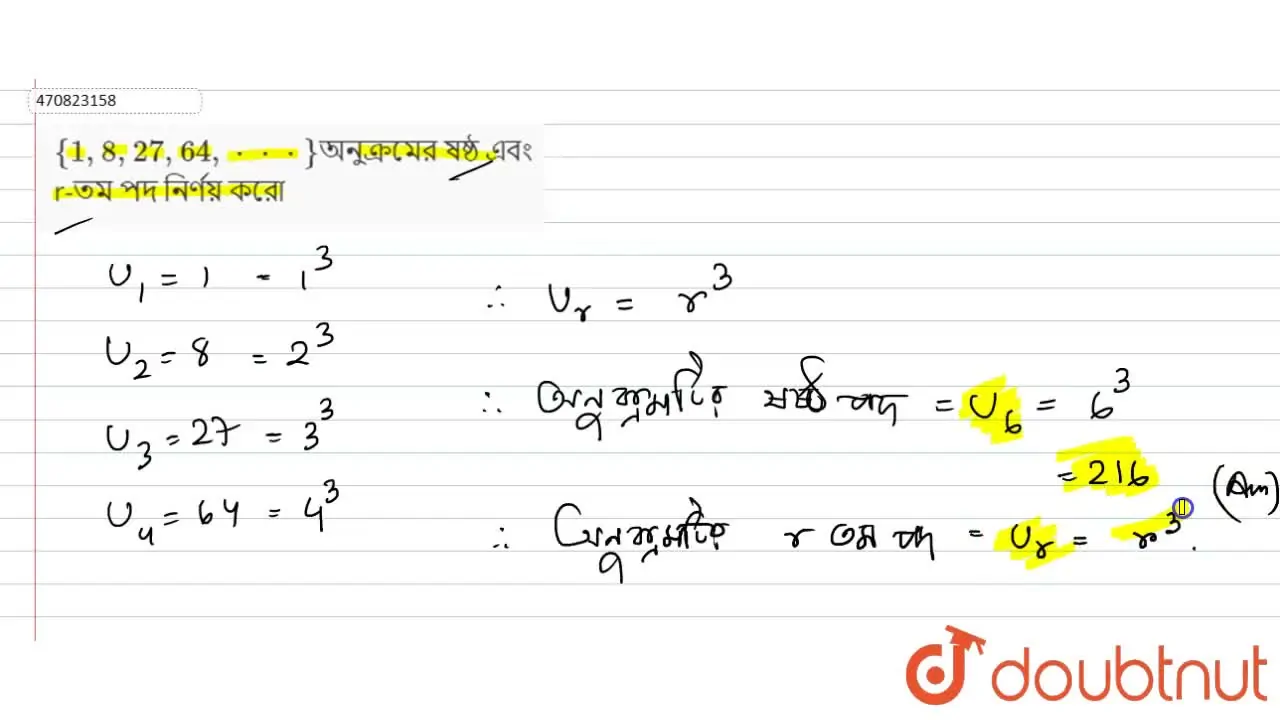 470823158
{1, 8, 27, 64, · · · }অনুক্রমের ষষ্ঠ এবং
r-তম পদ নির্ণয় করো
U₁ = 1 = 1³
U₂ = 8 = 2³
U₃ = 27 = 3³
U₄ = 64 = 4³
∴ Uᵣ = r³
∴ অনুক্রমটির ষষ্ঠ পদ = U₆ = 6³
= 216 (Ans)
∴ অনুক্রমটির r তম পদ = Uᵣ = r³.
doubtnut